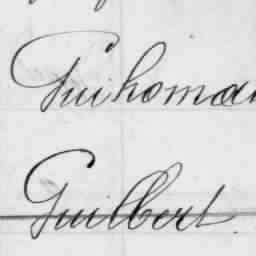 Guihoma
Guilbert.